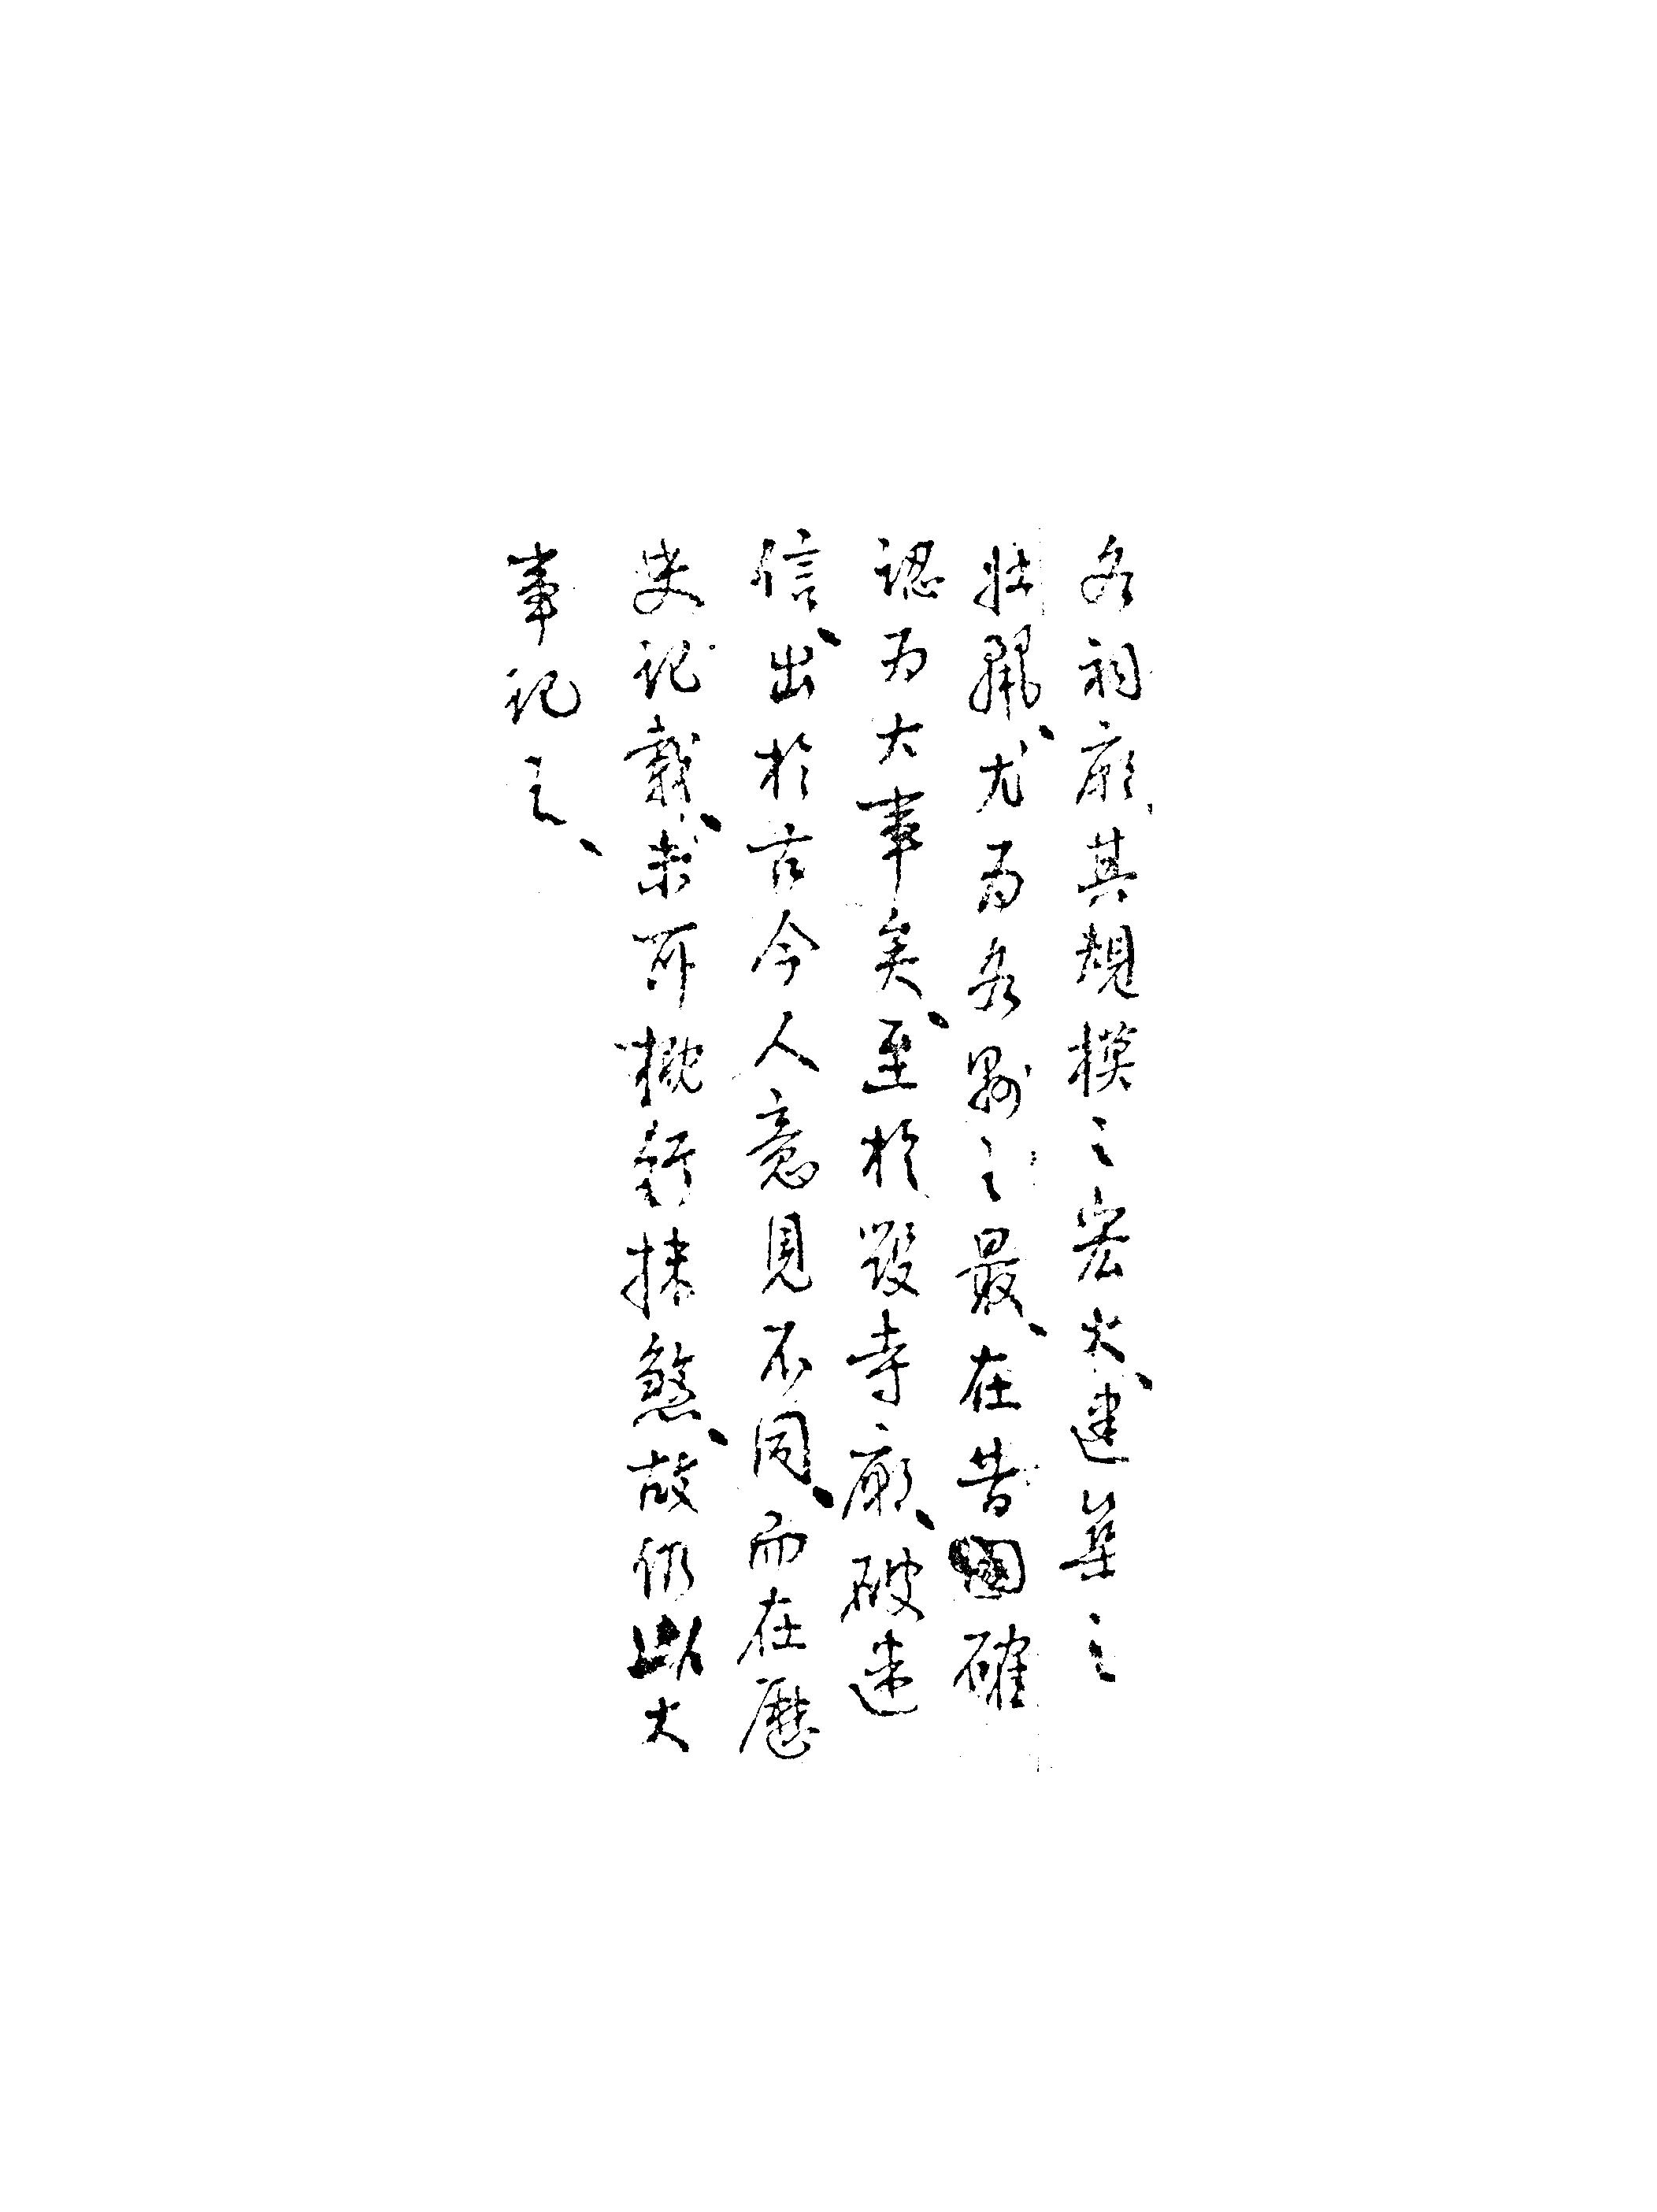 各祠廟其規模之宏大、建築之
壯麗、尤為各縣之最、在昔固確
認為大事矣、至於毀寺廟、破迷
信、出於古今人意見不同、而在歷
史記載、未可概行抹煞、故仍以大
事記之、